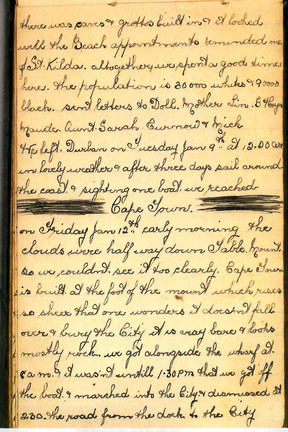 there was caves & grottos built in & it looked
with the Beach appointments reminded me
of St. Kilda. altogether we spent a good time
here. the population is 30000 white & 9000
black. sent letters to Doll. Mother Lin. E
Maude. Aunt. Sarah. & Mick
& left. Durban on Tuesday Jan 9th at 12.00
in lovely weather & after three days sail around
the coast & sighting one boat we reached
Cape Town.
on Friday Jan 12th early morning the
clouds were half way down Table. Mount.
so we couldn't see it too clearly. Cape Town
is built at the foot of the mount which rises
so sheer that one wonders it doesn't fall
over & bury the City it is very bare & looks
mostly rock. we got alongside the wharf at.
8 am. & it wasn't until 1.30 PM that we got off
the boat. & marched into the City & dismissed at
2.30. the road from the dock to the City